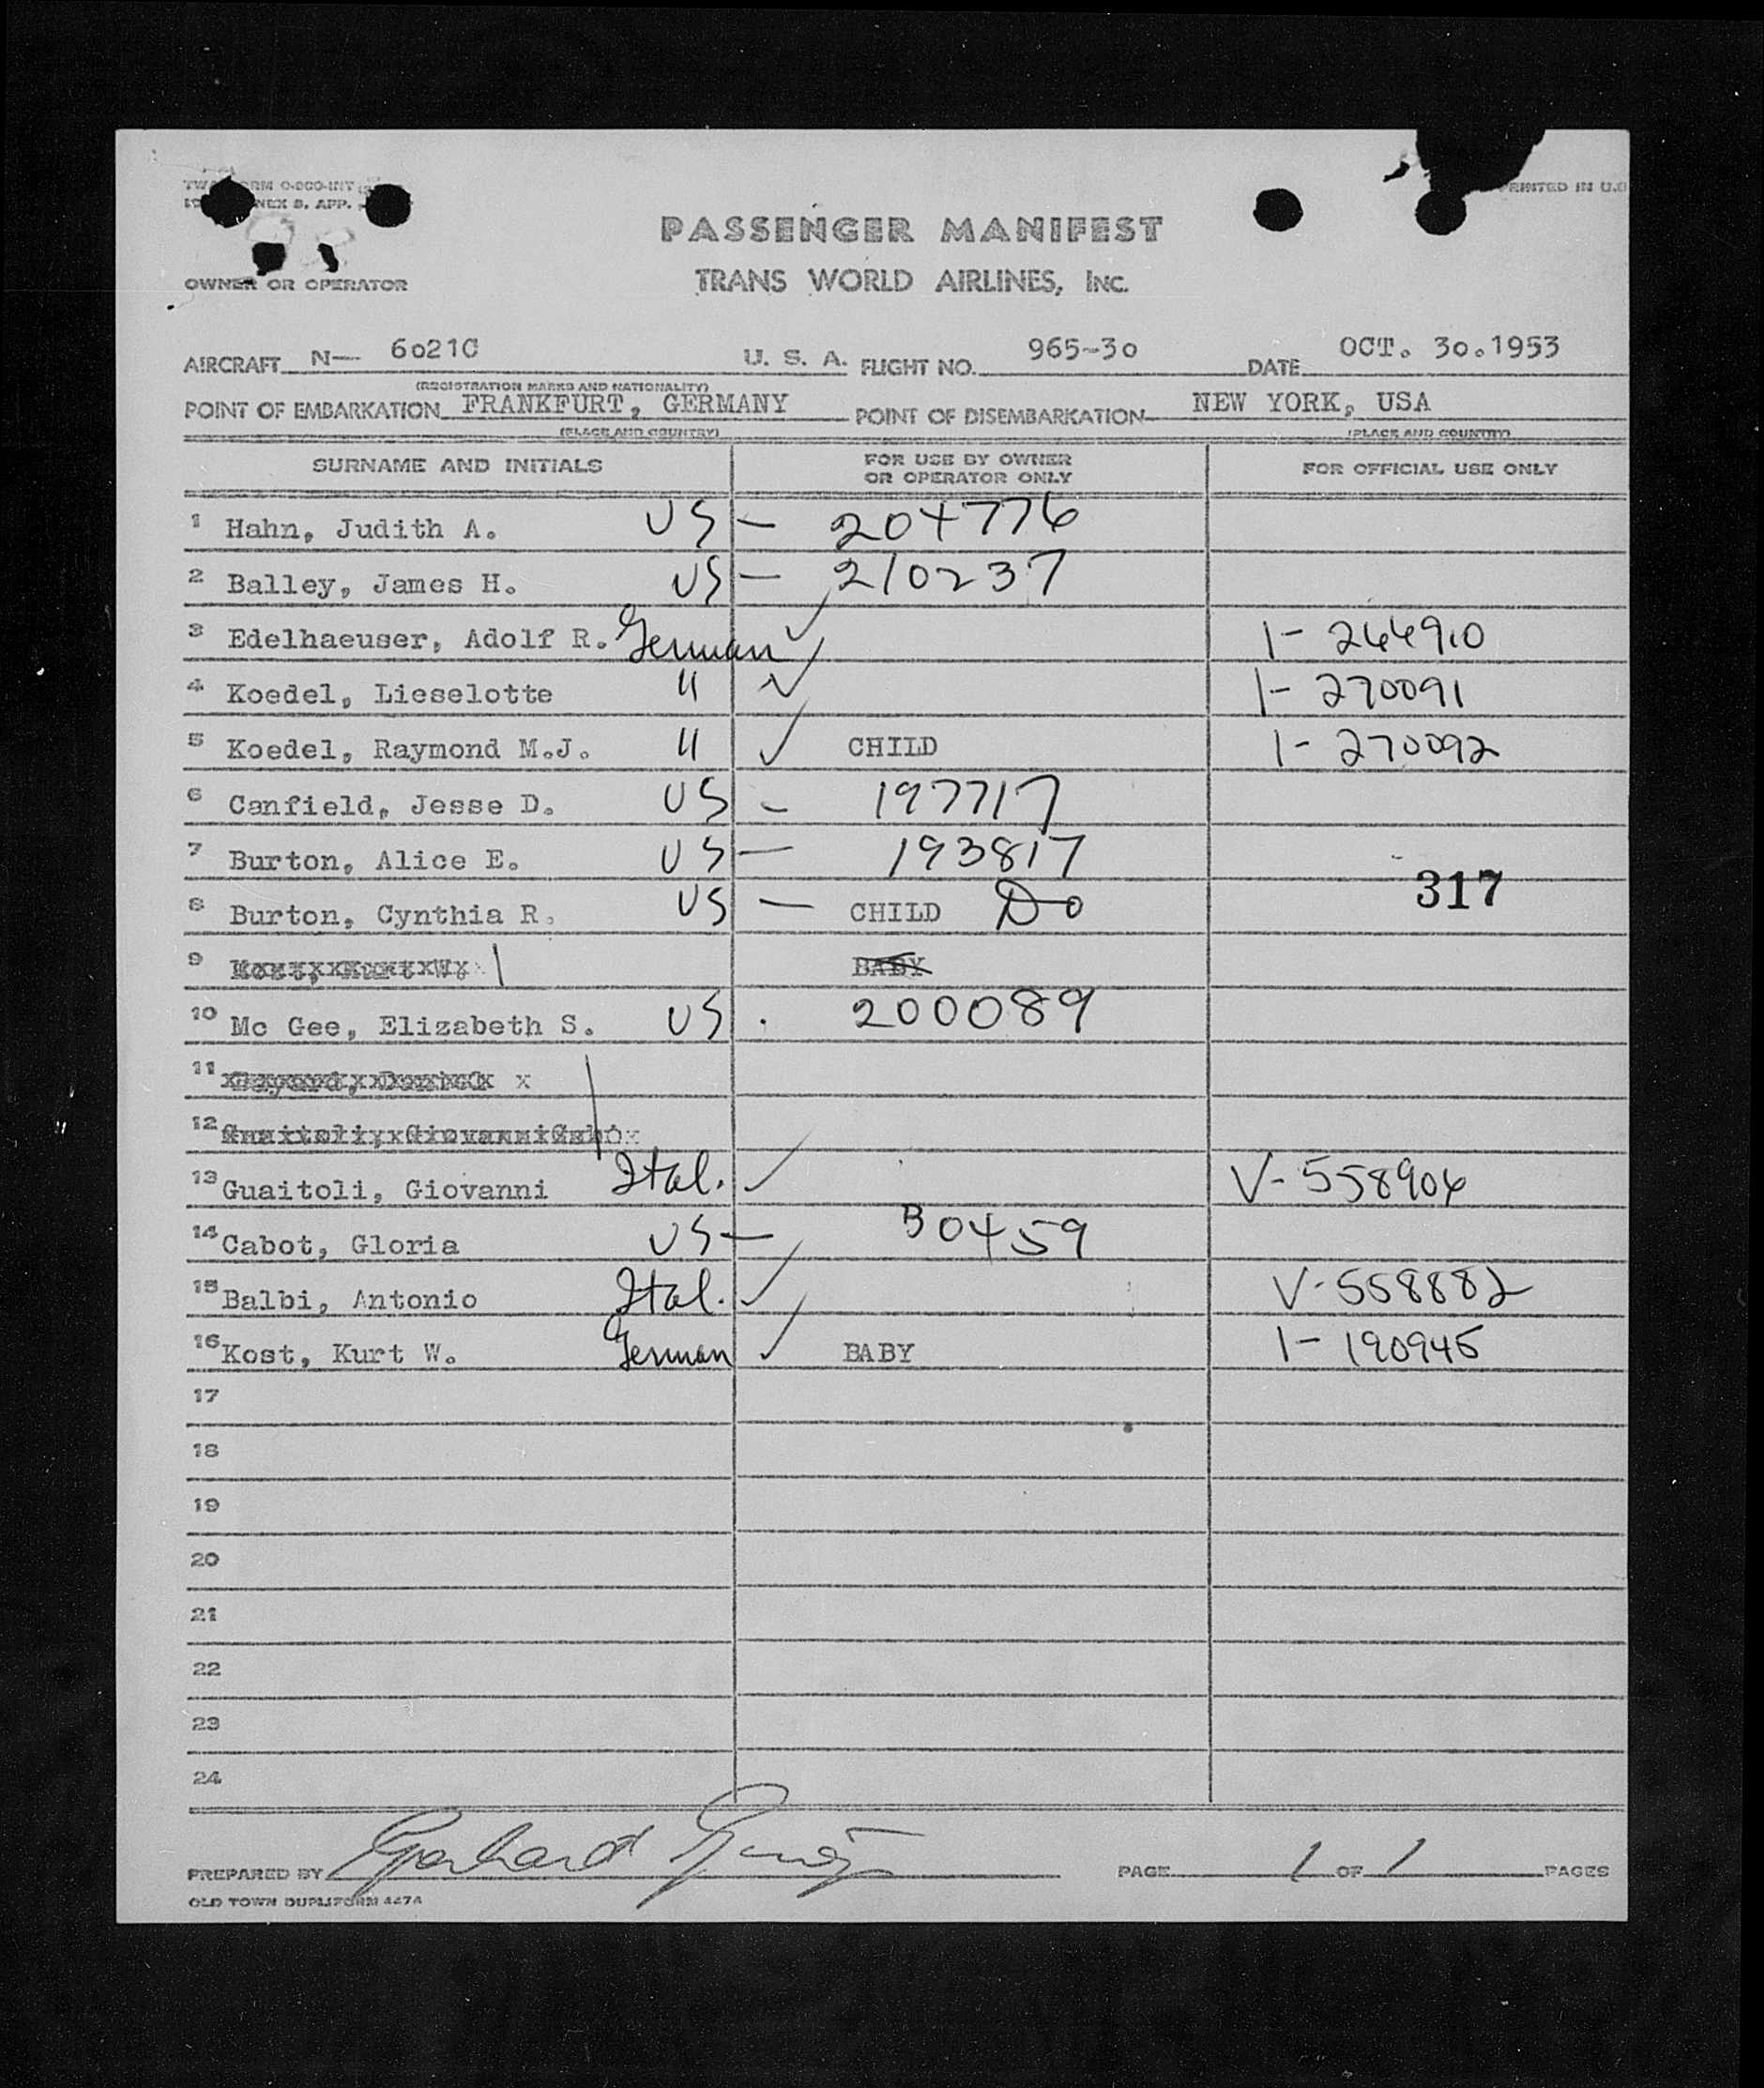 PRINTED IN U.S
PASSENGER MANIFEST
OWNER OR OPERATOR
TRANS WORLD AIRLINES, INC.
AIRCRAFT N— 6021C U. S. A. FLIGHT NO. 965-30 DATE OCT. 30.1953
(REGISTRATION MARKS AND NATIONALITY)
POINT OF EMBARKATION FRANKFURT, GERMANY POINT OF DISEMBARKATION NEW YORK, USA
(PLACE AND COUNTRY) (PLACE AND COUNTRY)
SURNAME AND INITIALS FOR USE BY OWNER OR OPERATOR ONLY FOR OFFICIAL USE ONLY
1 Hahn, Judith A. US — 204776
2 Balley, James H. US — 210237
3 Edelhaeuser, Adolf R. German ✓ 1- 244910
4 Koedel, Lieselotte " ✓ 1- 270091
5 Koedel, Raymond M.J. " ✓ CHILD 1- 270092
6 Canfield, Jesse D. US - 197717
7 Burton, Alice E. US — 193817
317
8 Burton, Cynthia R. US — CHILD Do
9 BABY
10 Mc Gee, Elizabeth S. US . 200089
11
12
13 Guaitoli, Giovanni Ital. ✓ V- 558904
14 Cabot, Gloria US — B0459
15 Balbi, Antonio Ital. ✓ V- 558882
16 Kost, Kurt W. German ✓ BABY 1- 190945
17
18
19
20
21
22
23
24
PREPARED BY Gerhard PAGE 1 OF 1 PAGES
OLD TOWN DUPLIFORM 447A